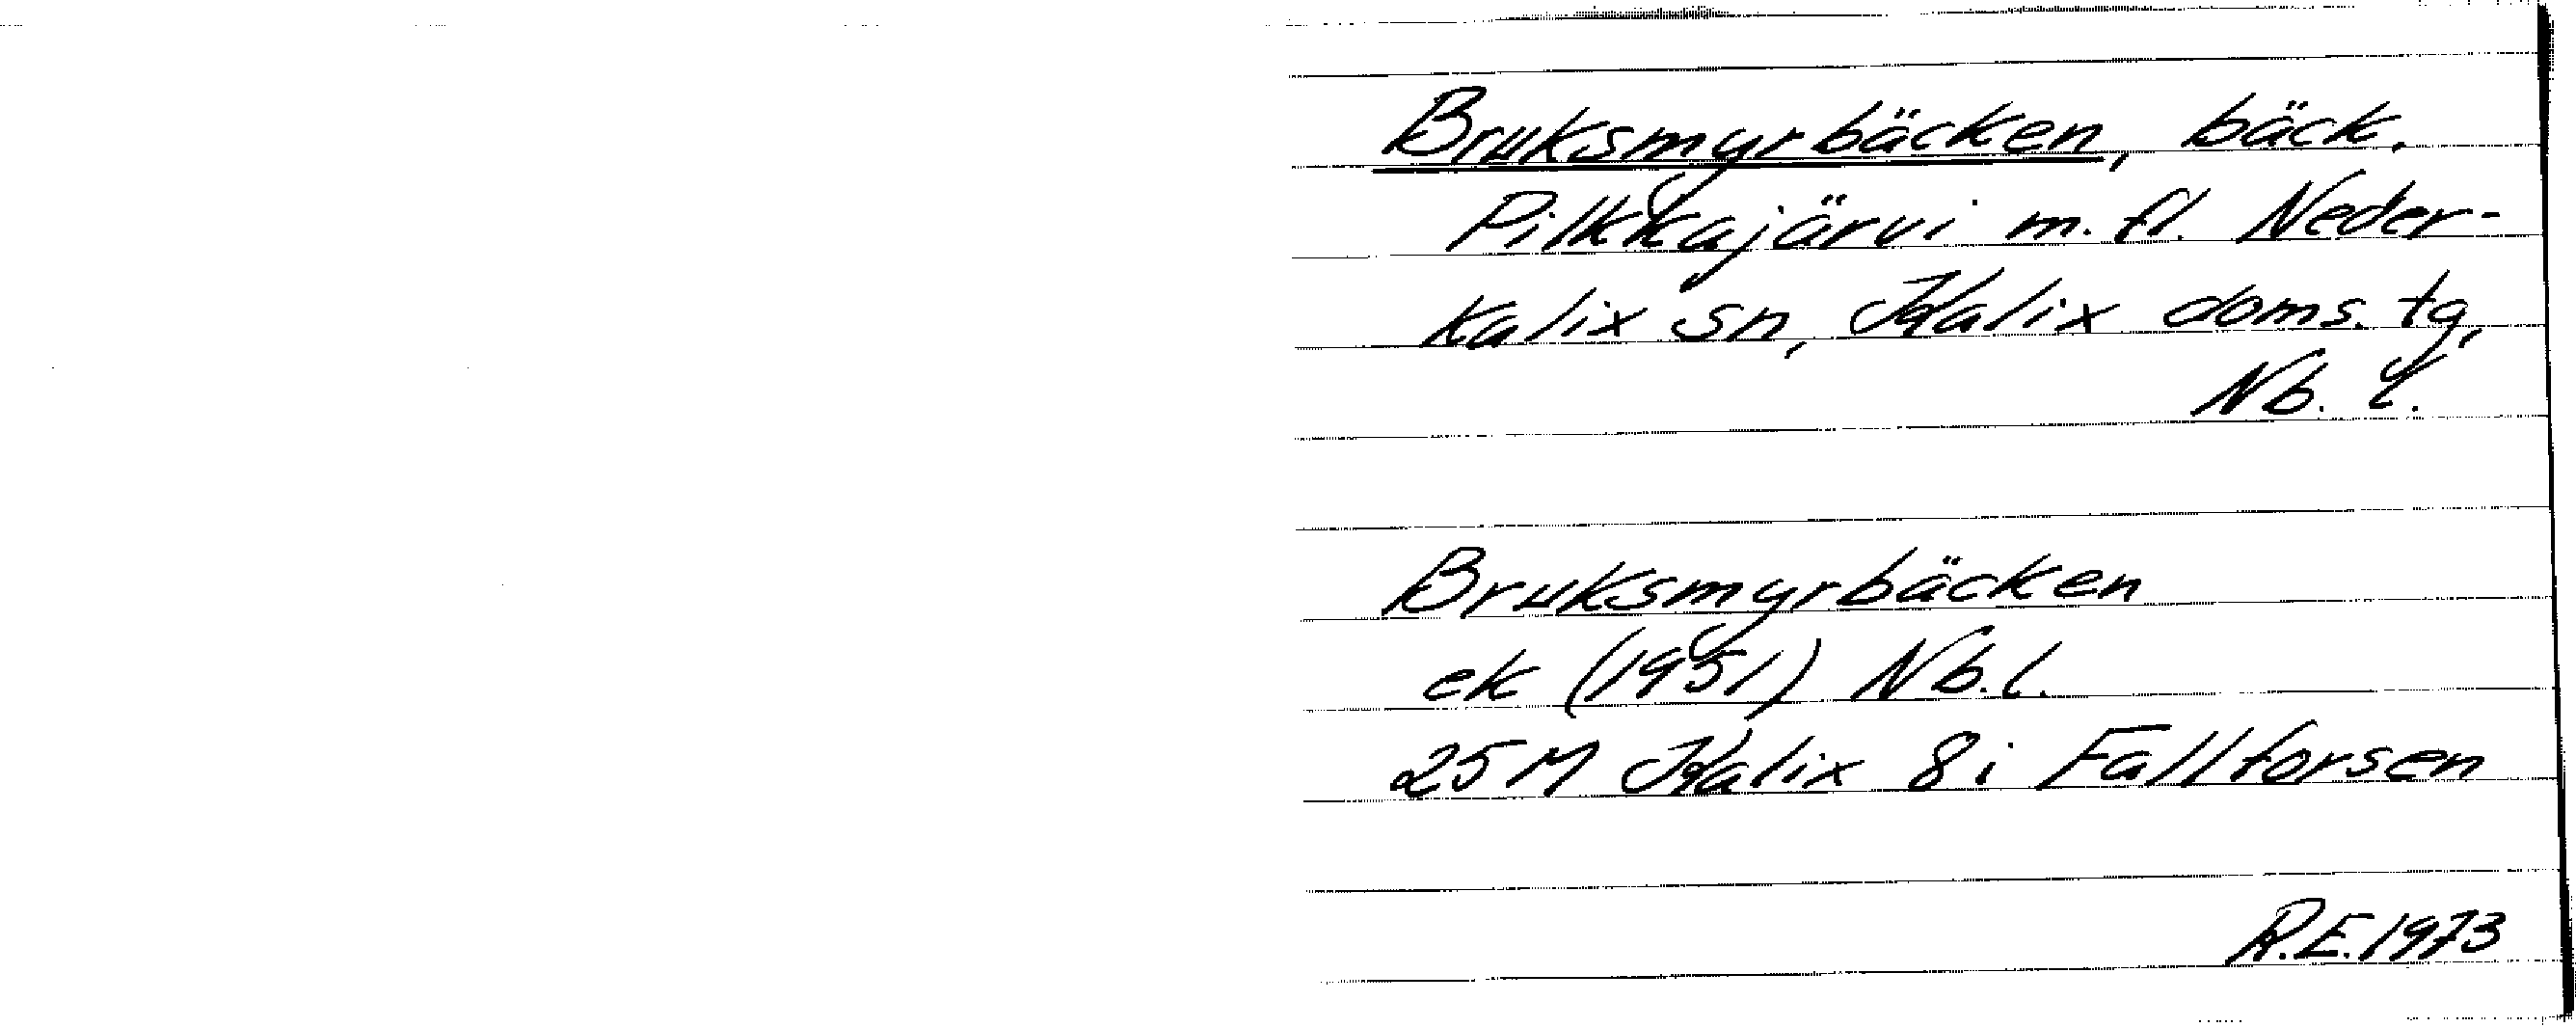 Bruksmyrbäcken, bäck.
Pilkkajärvi m. fl. Neder-
kalix sn, Kalix doms. tg,
Nb. l.
Bruksmyrbäcken
ek (1951) Nb.l.
25 M Kalix 8i Fallforsen
R.E. 1973